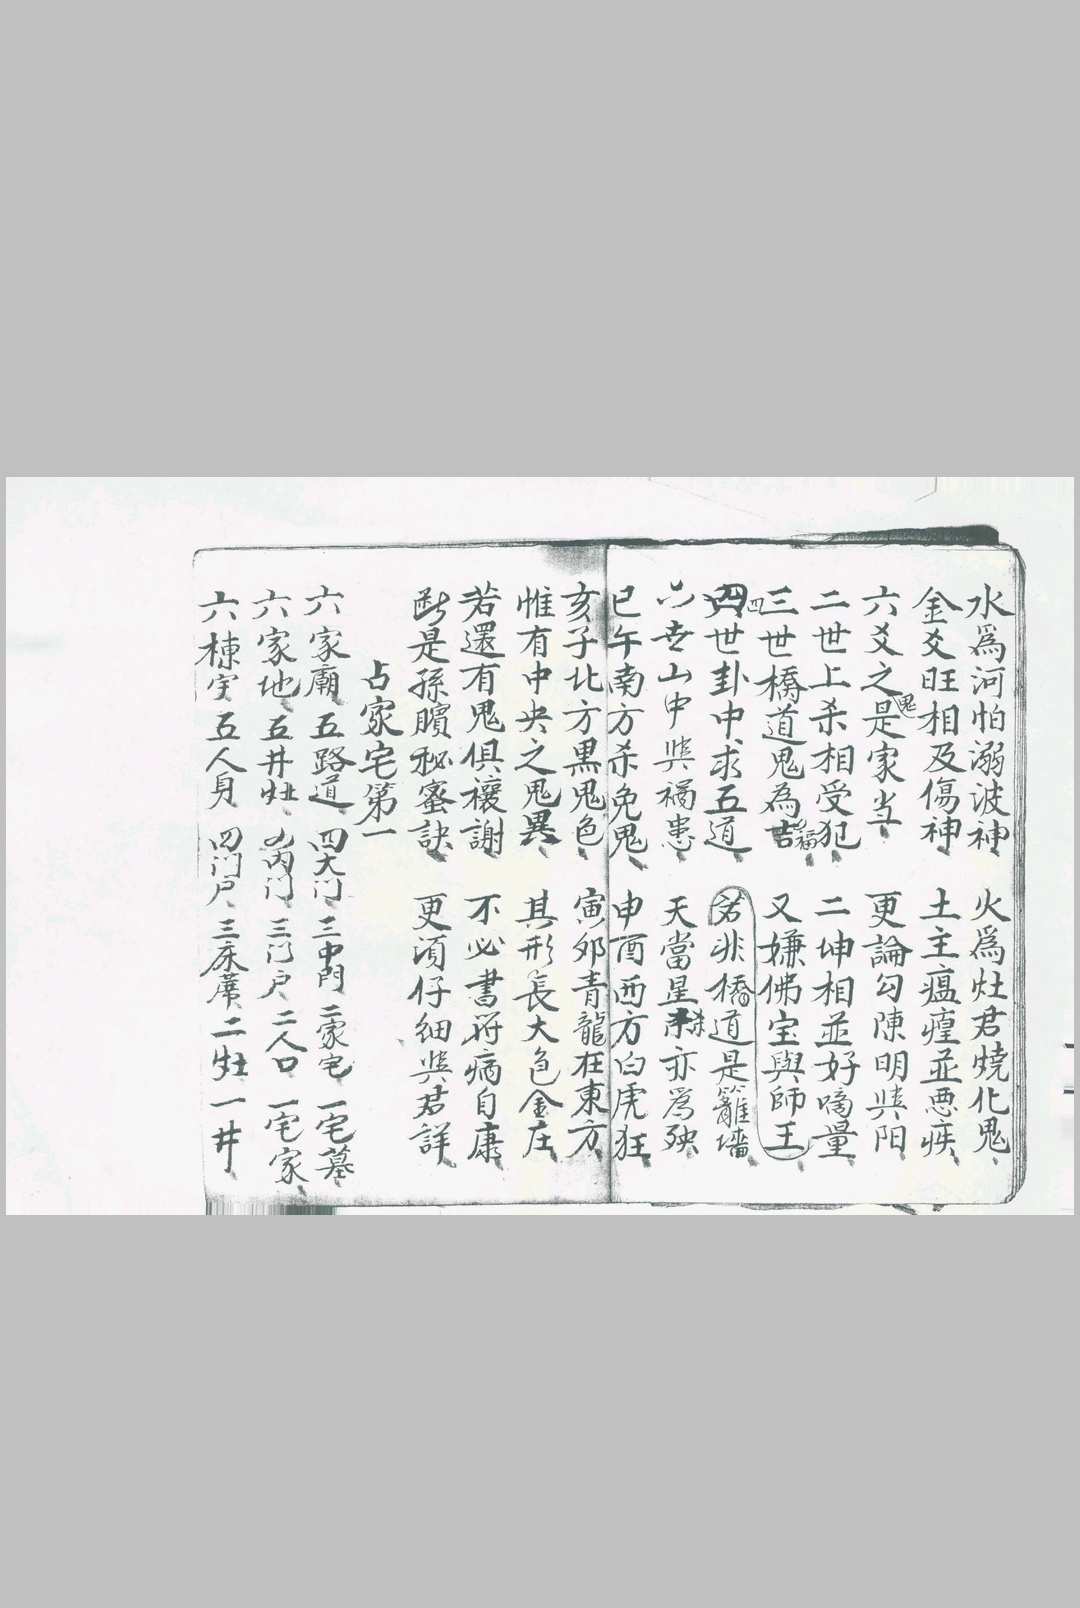 水為河怕溺波神 火為灶君燒化鬼
金爻旺相及傷神 土主瘟瘽並悪疾
六爻之是家当 鬼 更論勾陳明與陽
二世上杀相受犯 二坤相並好啇量
三世橋道鬼為 禍 又嫌佛宝與師王
四世卦中求五道 若非橋道是籬墻
六世山中與禍患 天當星杀亦為殃
巳午南方杀免鬼 申酉西方白虎狂
亥子北方黒鬼色 寅卯青龍在東方
惟有中央之鬼異 其形長大色金庄
若還有鬼俱禳謝 不必書符病自康
此是孫臏秘蜜訣 更須仔細與君詳
占家宅第一
六家廟 五路道 四大门 三中門 二家宅 一宅墓
六家地 五井灶 四内门 三门户 二人口 一宅家
六棟宇 五人身 四门户 三床蓆 二灶 一井